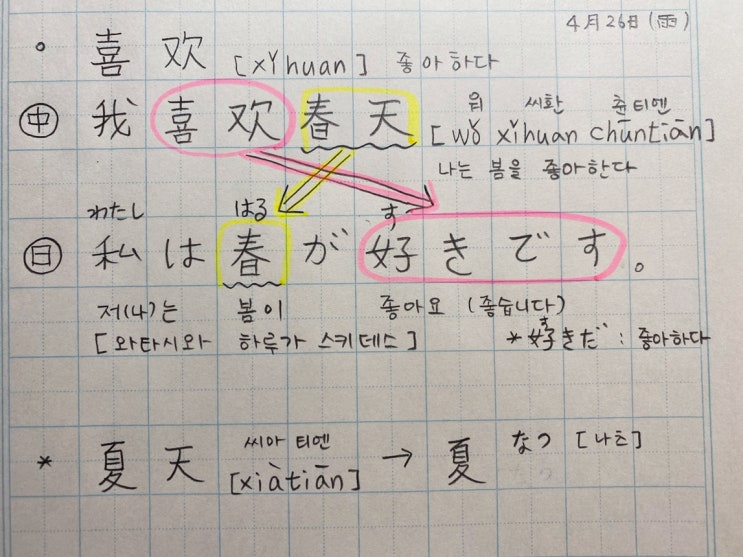 4月26日(雨)
。 喜 欢 [xǐhuan] 좋아하다
워 씨환 츈티엔
㊥ 我 喜 欢 春 天 [wǒ xǐhuan chūntiān]
나는 봄을 좋아한다
わたし はる す
㊐ 私 は 春 が 好 き で す 。
저(나)는 봄이 좋아요 (좋습니다)
[와타시와 하루가 스키데스] * 好(す)きだ : 좋아하다
씨아 티엔 なつ [나츠]
* 夏 天 [xiàtiān] → 夏